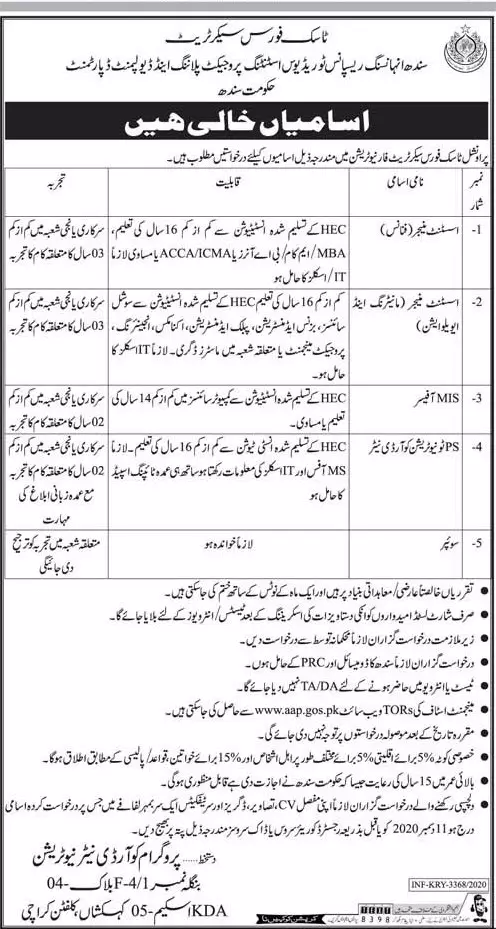 ٹاسک فورس سیکرٹریٹ
سندھ انہانسنگ ریسپانس ٹو ریڈیوس اسٹنٹنگ پروجیکٹ پلاننگ اینڈ ڈیولپمنٹ ڈپارٹمنٹ
حکومت سندھ
اسامیاں خالی ھیں
پراونشل ٹاسک فورس سیکرٹریٹ فار نیوٹریشن میں مندرجہ ذیل اسامیوں کیلئے درخواستیں مطلوب ہیں۔
نمبر شمار
نامی اسامی
قابلیت
تجربہ
1-
اسسٹنٹ منیجر (فنانس)
HEC کے تسلیم شدہ انسٹیٹیوشن سے کم از کم 16 سال کی تعلیم،
MBA/ایم کام/بی اے آنرز یا ACCA/ICMA یا مساوی لازماً
IT/اسکلز کا حامل ہو
سرکاری یا نجی شعبہ میں کم از کم
03 سال کا متعلقہ کام کا تجربہ
2-
اسسٹنٹ منیجر (مانیٹرنگ اینڈ
ایویلوایشن)
کم از کم 16 سال کی تعلیم HEC کے تسلیم شدہ انسٹیٹیوشن سے سوشل
سائنسز، بزنس ایڈمنسٹریشن، پبلک ایڈمنسٹریشن، اکنامکس، انجینئرنگ،
پروجیکٹ مینجمنٹ یا متعلقہ شعبہ میں ماسٹرز ڈگری۔ لازماً IT اسکلز کا
حامل ہو۔
سرکاری یا نجی شعبہ میں کم از کم
03 سال کا متعلقہ کام کا تجربہ
3-
MIS آفیسر
HEC کے تسلیم شدہ انسٹیٹیوشن سے کمپیوٹر سائنسز میں کم از کم 14 سال کی
تعلیم یا مساوی۔
سرکاری یا نجی شعبہ میں کم از کم
02 سال کا متعلقہ کام کا تجربہ
4-
PS ٹو نیوٹریشن کوآرڈی نیٹر
HEC کے تسلیم شدہ انسٹی ٹیوشن سے کم از کم 16 سال کی تعلیم۔ لازماً
MS آفس اور IT اسکلز کی معلومات رکھتا ہو ساتھ ہی عمدہ ٹائپنگ اسپیڈ
کا حامل ہو
سرکاری یا نجی شعبہ میں کم از کم
02 سال کا متعلقہ کام کا تجربہ
مع عمدہ زبانی ابلاغ کی
مہارت
5-
سوئپر
لازماً خواندہ ہو
متعلقہ شعبہ میں تجربہ کو ترجیح
دی جائیگی
● تقرریاں خالصتاً عارضی/معاہداتی بنیاد پر ہیں اور ایک ماہ کے نوٹس کے ساتھ ختم کی جاسکتی ہیں۔
● صرف شارٹ لسٹڈ امیدواروں کو انکی دستاویزات کی اسکریننگ کے بعد ٹیسٹس/انٹرویوز کے لئے بلایا جائے گا۔
● زیر ملازمت درخواست گزاران لازماً محکمانہ توسط سے درخواست دیں۔
● درخواست گزاران لازماً سندھ کا ڈومیسائل اور PRC کے حامل ہوں۔
● ٹیسٹ یا انٹرویو میں حاضر ہونے کے لئے TA/DA نہیں دیا جائے گا۔
● مینجمنٹ اسٹاف کی TORs ویب سائٹ www.aap.gos.pk سے حاصل کی جاسکتی ہیں۔
● مقررہ تاریخ کے بعد موصولہ درخواستوں پر توجہ نہیں دی جائے گی۔
● خصوصی کوٹہ 5% برائے اقلیتی 5% برائے مختلف طور پر اہل اشخاص اور 15% برائے خواتین، قواعد/پالیسی کے مطابق اطلاق ہوگا۔
● بالائی عمر میں 15 سال کی رعایت جیسا کہ حکومت سندھ نے اجازت دی ہے قابل منظوری ہوگی۔
● دلچسپی رکھنے والے درخواست گزاران لازماً اپنی مفصل CV، تصاویر، ڈگریز اور سرٹیفکیٹس ایک سربمہر لفافے میں جس پر درخواست کردہ اسامی
درج ہو 11 دسمبر 2020 کو یا قبل بذریعہ رجسٹرڈ کوریئر سروس یا ڈاک سروسز مندرجہ ذیل پتہ پر بھیج دیں۔
دستخط......
پروگرام کوآرڈی نیٹر نیوٹریشن
بنگلہ نمبر F-4/1 بلاک - 04
KDA اسکیم - 05 کہکشاں، کلفٹن کراچی
INF-KRY-3368/2020
8398
کرپشن کو کہیں نا